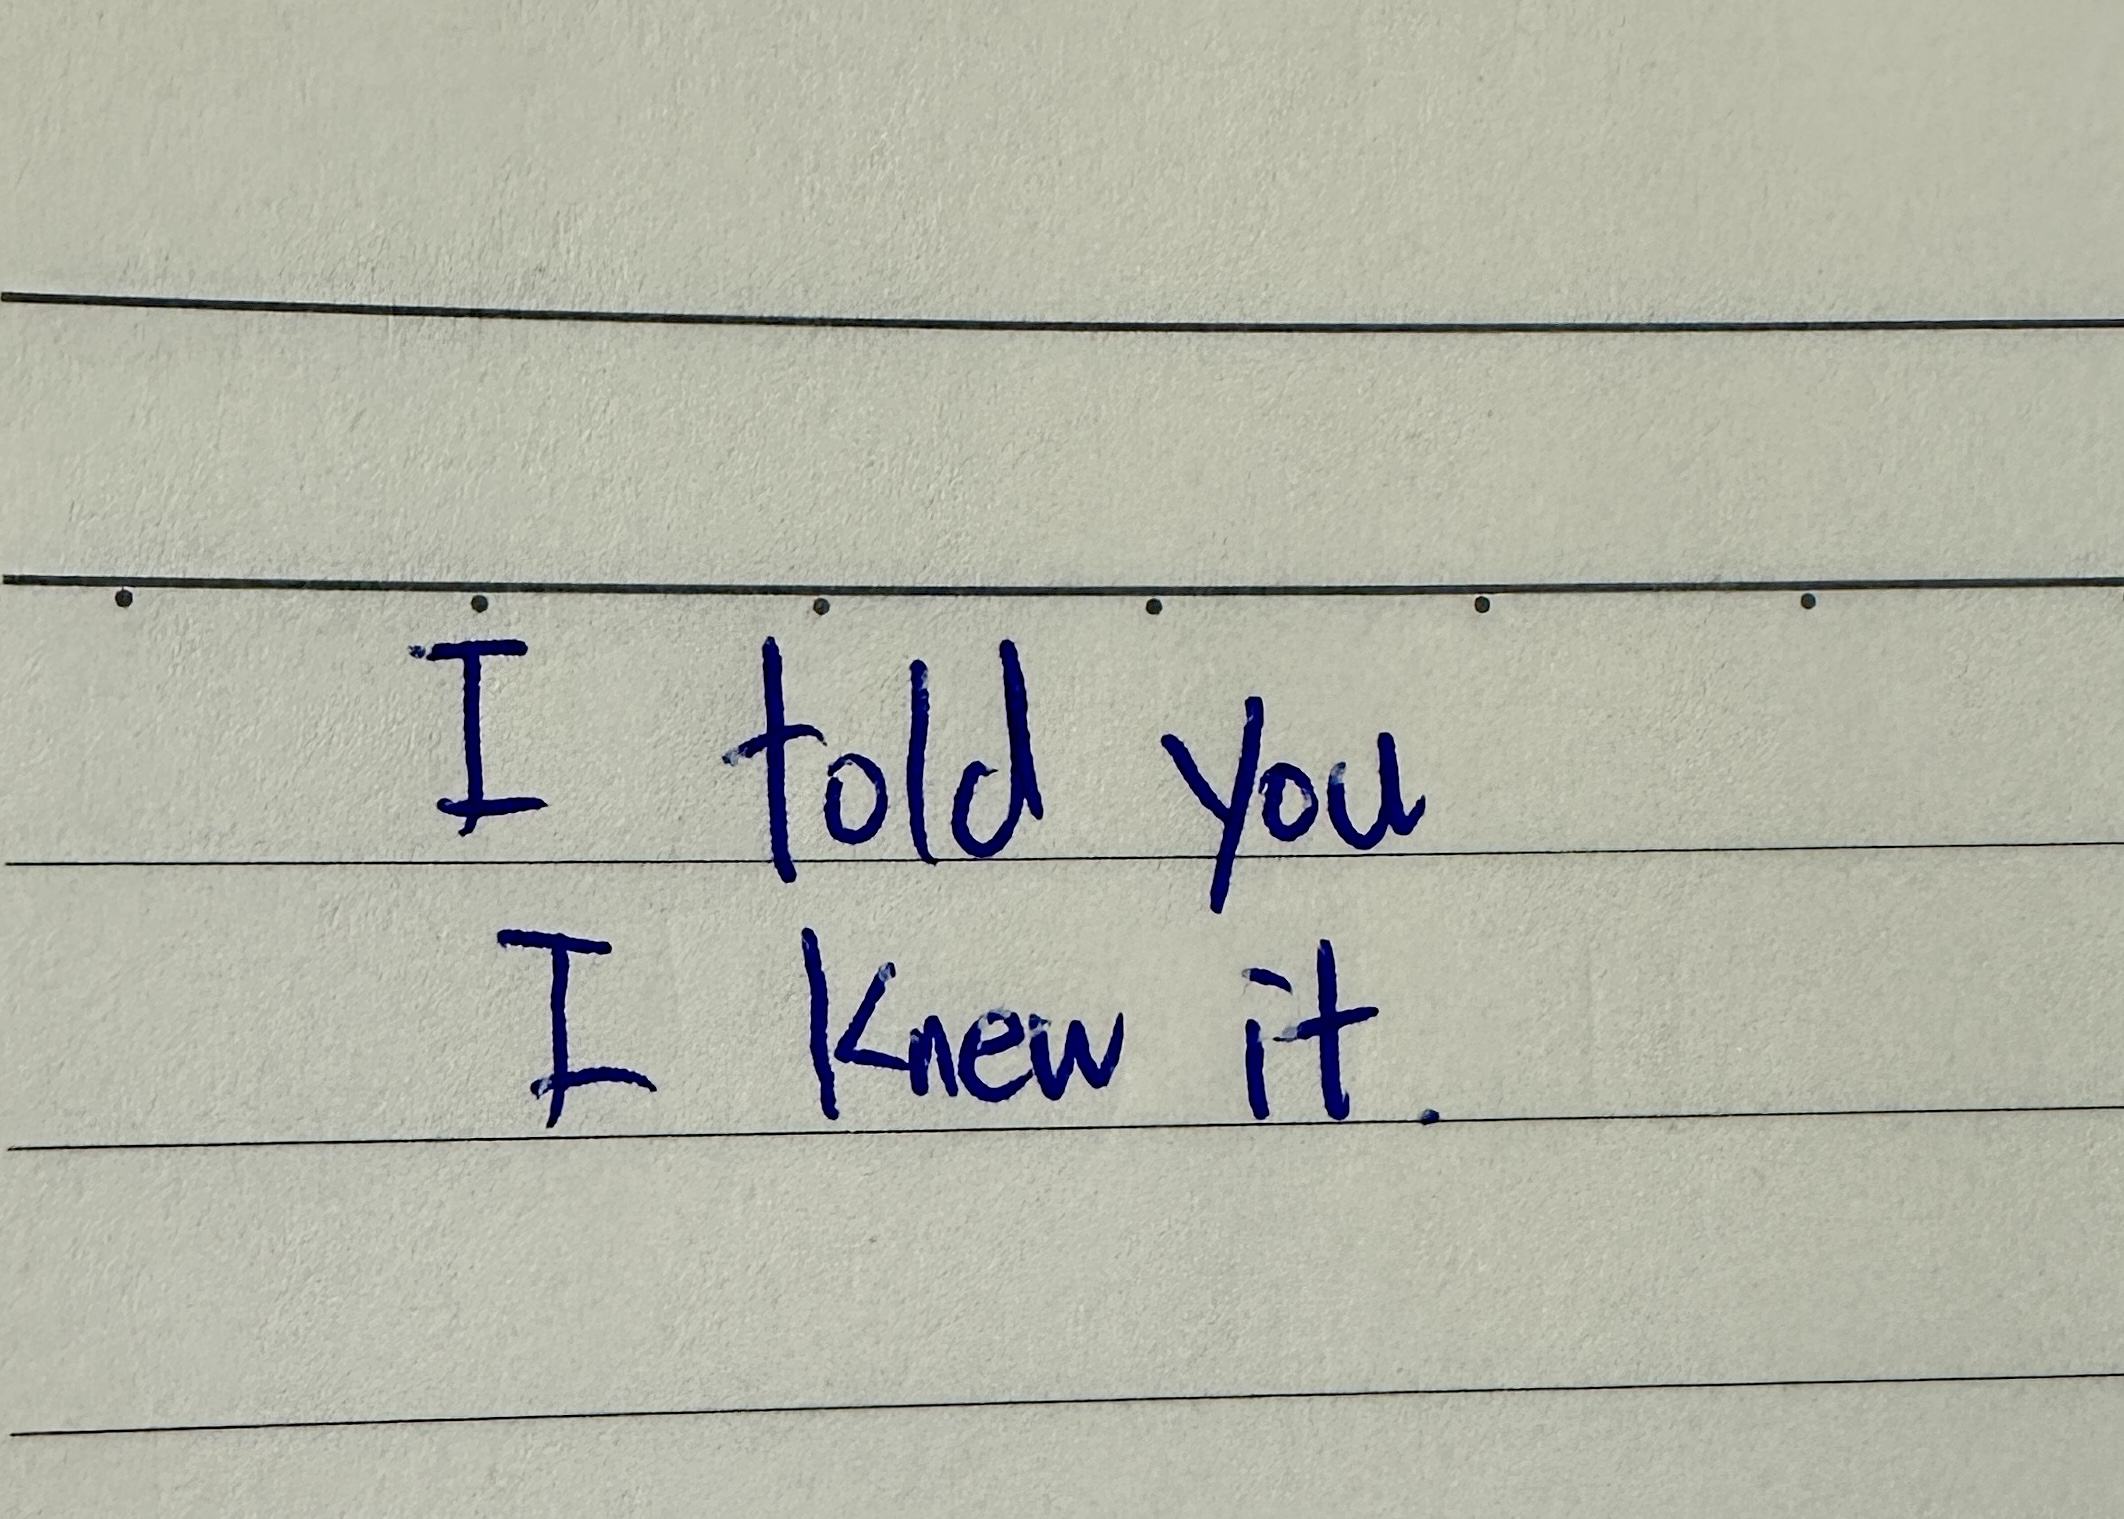 I told you
I knew it.